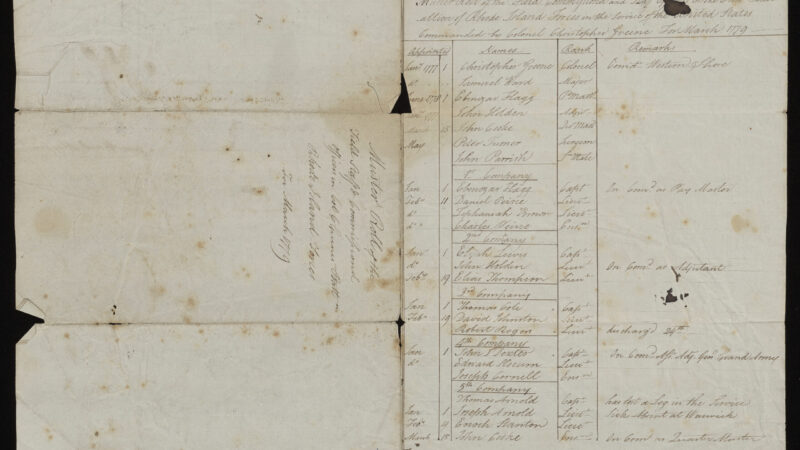 Muster Roll of the
Field Staff & Commissiond
officers in Col Greens Regt in
Rhode Island Forces
for March 1779
Muster Roll of the Field Commissiond and Staff
of Rhode Island Forces in the Service of the United States
Commanded by Colonel Christopher Greene For March 1779
Appointed Names Rank Remark
Jany 1777 1 Christopher Greene Colonel Comdt Western Shore
do Samuel Ward Major
June 1778 1 Ebenezar Flagg P Mastr
1777 John Holden Adjt
March 15 John Cooke Qr Mastr
May Peter Turner Surgeon
John Parrish Sn Mate
1st Company
Jan 1 Ebenezar Flagg Capt On Comd as Pay Master
Feby 11 Daniel Peirce Lieut
do Zephaniah Lieut
do Charles Ensn
2nd Company
Jan 1 Elijah Lewis Capt
do John Holden Lieut On Comd as Adjutant
Feby 19 Elias Thompson Lieut
3rd Company
Jan 1 Thomas Cole Capt
Feby 19 David Johnston Lieut
Robert Rogers Lieut dischargd 24th
4th Company
Jan 1 John S Dexter Capt On Comd Asst Adj Genl Grand Army
do Edward Slocum Lieut
Joseph Cornell Ensn
5th Company
Thomas Arnold Capt has lost a Leg in the Service
Jan 1 Joseph Arnold Lieut Sick Absent at Warwick
Feby 9 Enoch Stanton Lieut
March 15 John Cooke Ens On Comd as Quarter Master